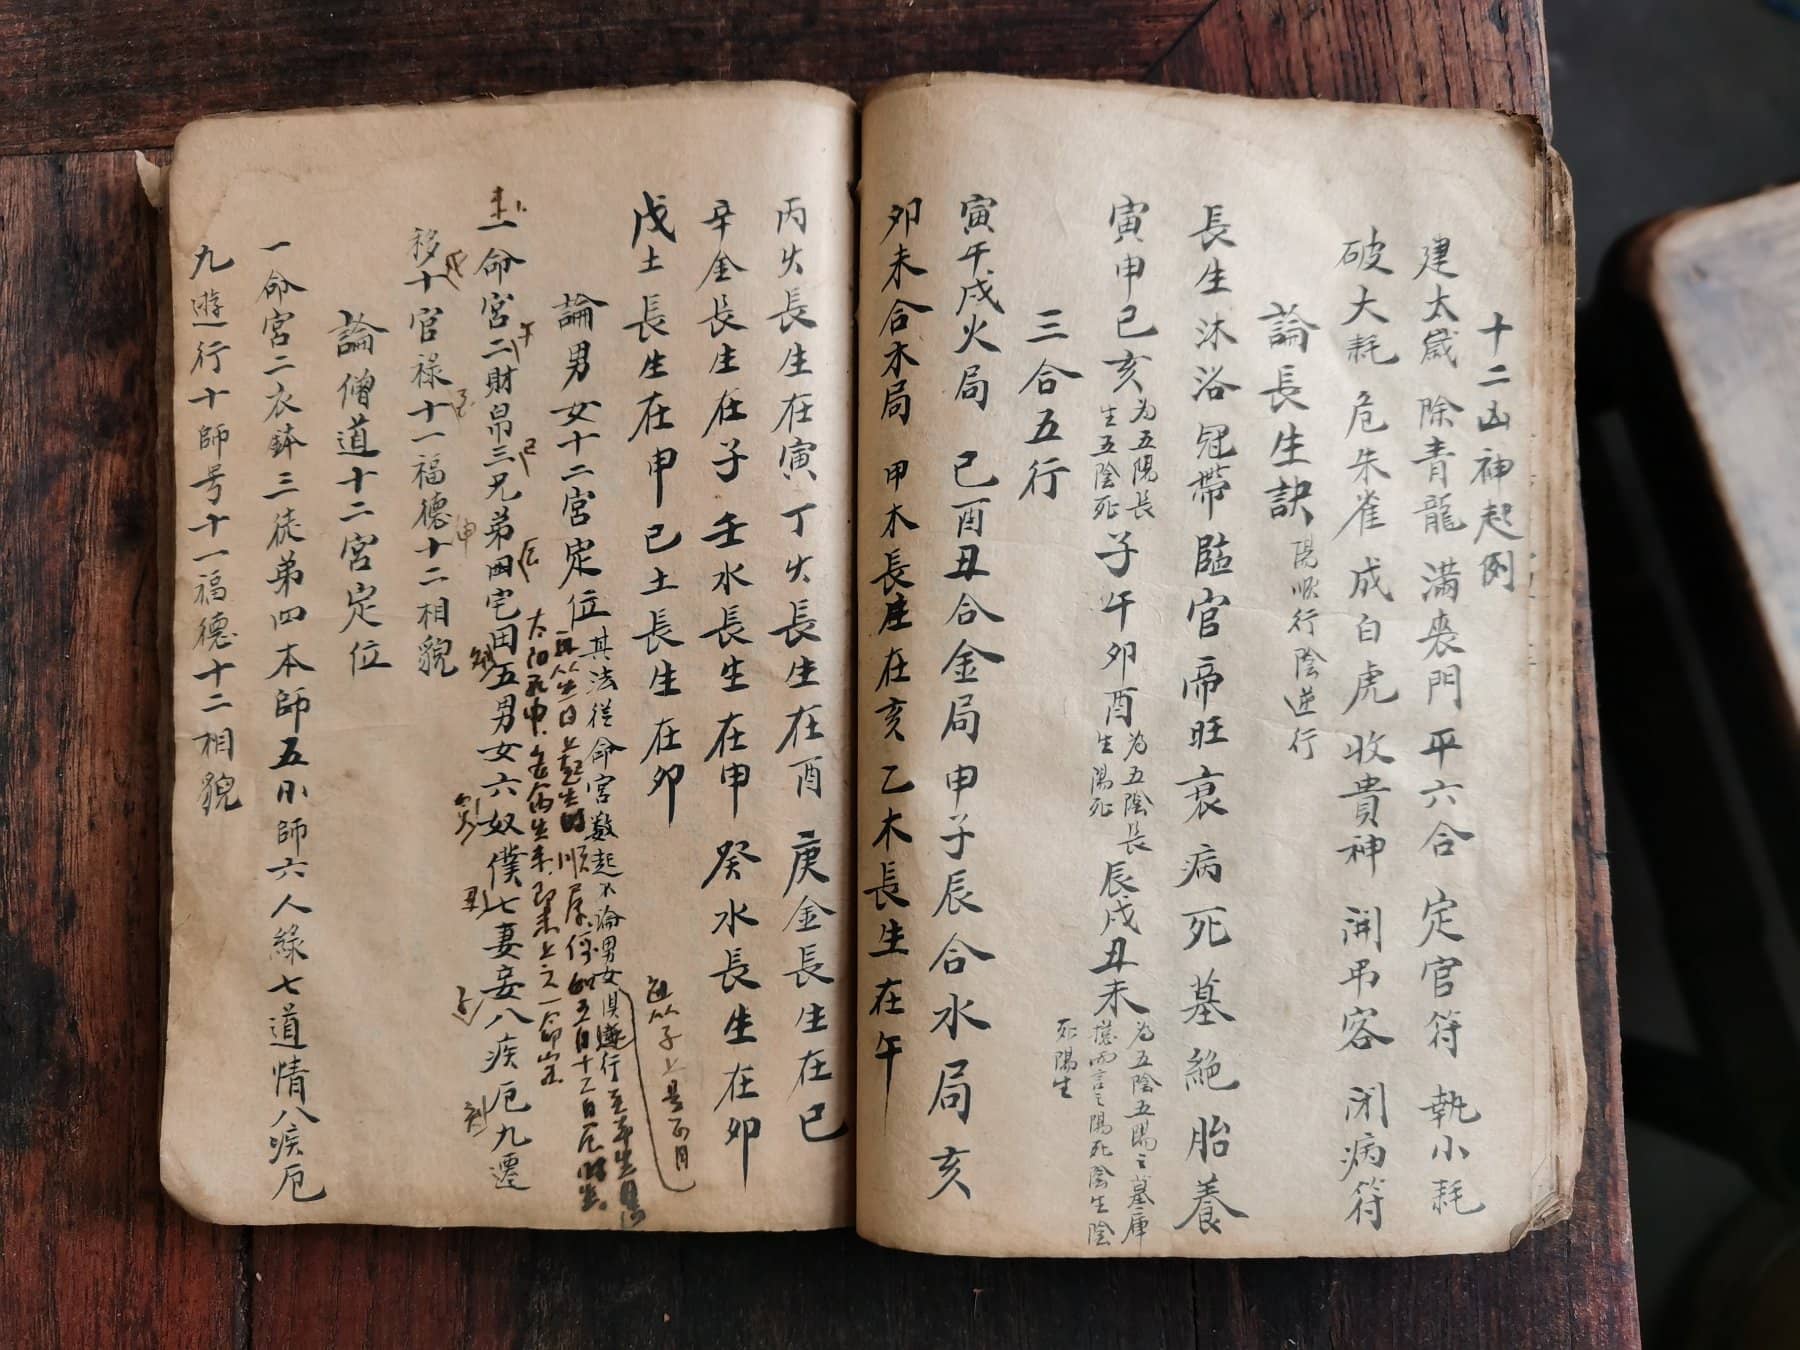 十二凶神起例
建太歲 除青龍 滿喪門 平六合 定官符 執小耗
破大耗 危朱雀 成白虎 收貴神 開吊客 閉病符
論長生訣 陽順行陰逆行
長生沐浴冠帶臨官帝旺衰病死墓絕胎養
寅申巳亥 為五陽長生五陰死 子午卯酉 為五陰長生陽死 辰戌丑未 為五陰五陽之墓庫 而言之陽死陰生陰死陽生
三合五行
寅午戌火局 巳酉丑合金局申子辰合水局亥
卯未合木局 甲木長生在亥乙木長生在午
丙火長生在寅丁火長生在酉庚金長生在巳
辛金長生在子壬水長生在申癸水長生在卯
戊土長生在申己土長生在卯
論男女十二宮定位 其法從命宮數起不論男女俱逆行
一命宮二財帛三兄弟四宅田五男女六奴僕七妻妾八疾厄九遷
移十官祿十一福德十二相貌
論僧道十二宮定位
一命宮二衣鉢三徒弟四本師五小師六人緣七道情八疾厄
九遊行十師号十一福德十二相貌